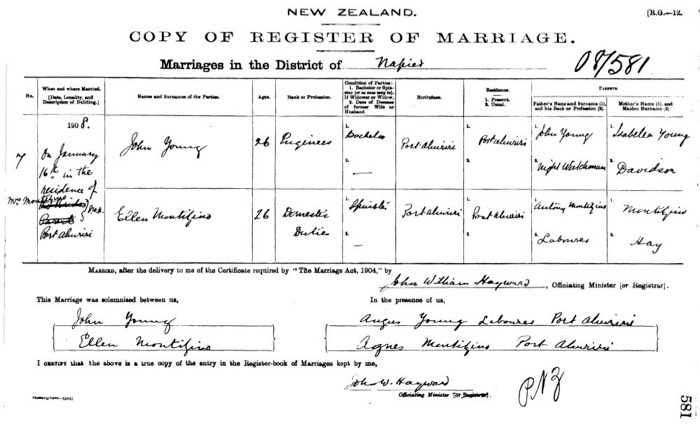 NEW ZEALAND.
[R.G.—12.
COPY OF REGISTER OF MARRIAGE.
Marriages in the District of Napier
08/581
No.
When and where Married. [Date, Locality, and Description of Building.]
Names and Surnames of the Parties.
Ages.
Rank or Profession.
Condition of Parties: 1. Bachelor or Spinster (or as case may be). If Widower or Widow, 2. Date of Decease of former Wife or Husband.
Birthplace.
Residence. 1. Present. 2. Usual.
PARENTS.
Father's Name and Surname (1), and his Rank or Profession (2).
Mother's Name (1), and Maiden Surname (2).
7
1908.
On January
16th in the
residence of
Mrs
Port Ahuriri
John Young
26
Engineer
1. Bachelor
2. —
Port Ahuriri
1. Port Ahuriri
2.
1. John Young
2. Night Watchman
1. Isabella Young
2. Davidson
Ellen Montifins
26
Domestic
Duties
1. Spinster
2. —
Port Ahuriri
1. Port Ahuriri
2.
1. Antony Montifins
2. Labourer
1. Montifins
2. Hay
MARRIED, after the delivery to me of the Certificate required by "The Marriage Act, 1904," by
John William Hayward, Officiating Minister [or Registrar].
This Marriage was solemnised between us,
In the presence of us,
John Young
Angus Young Labourer Port Ahuriri
Ellen Montifins
Agnes Montifins Port Ahuriri
I CERTIFY that the above is a true copy of the entry in the Register-book of Marriages kept by me,
John W. Hayward
Officiating Minister [or Registrar].
581